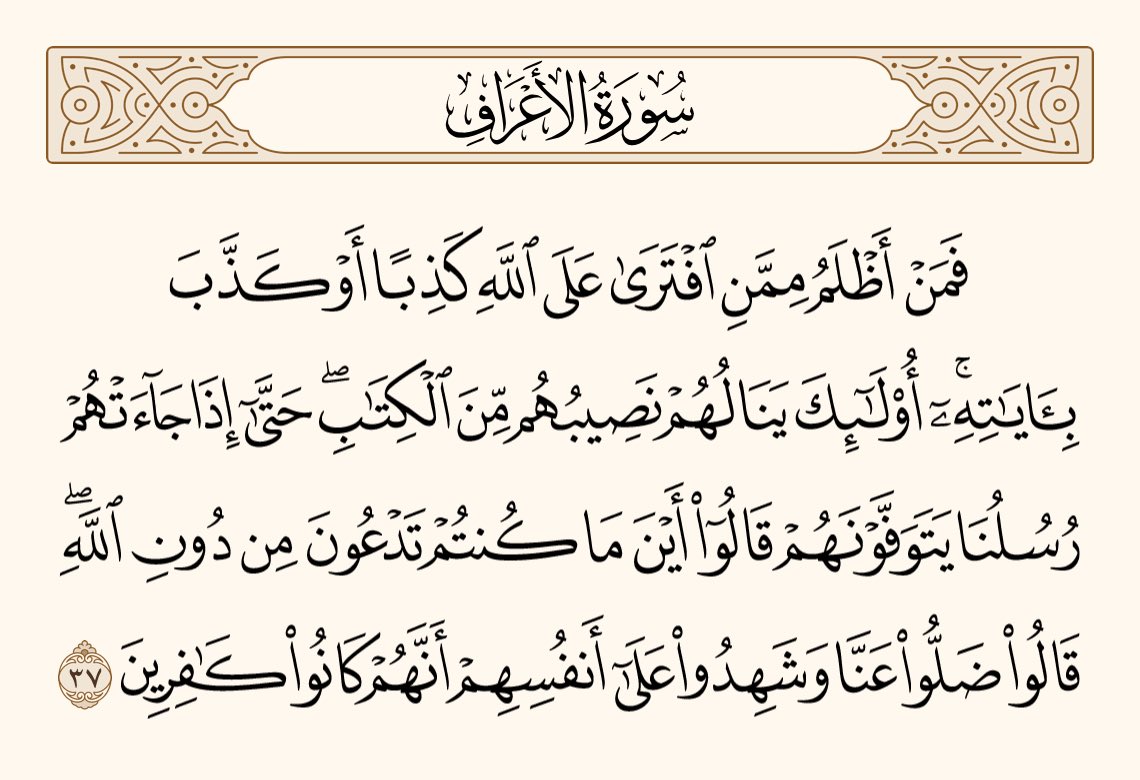 سُورَةُ الأَعْرَافِ
فَمَنْ أَظْلَمُ مِمَّنِ ٱفْتَرَىٰ عَلَى ٱللَّهِ كَذِبًا أَوْ كَذَّبَ
بِـَٔايَـٰتِهِۦٓ ۚ أُو۟لَـٰٓئِكَ يَنَالُهُمْ نَصِيبُهُم مِّنَ ٱلْكِتَـٰبِ ۖ حَتَّىٰٓ إِذَا جَآءَتْهُمْ
رُسُلُنَا يَتَوَفَّوْنَهُمْ قَالُوٓا۟ أَيْنَ مَا كُنتُمْ تَدْعُونَ مِن دُونِ ٱللَّهِ ۖ
قَالُوا۟ ضَلُّوا۟ عَنَّا وَشَهِدُوا۟ عَلَىٰٓ أَنفُسِهِمْ أَنَّهُمْ كَانُوا۟ كَـٰفِرِينَ ٣٧